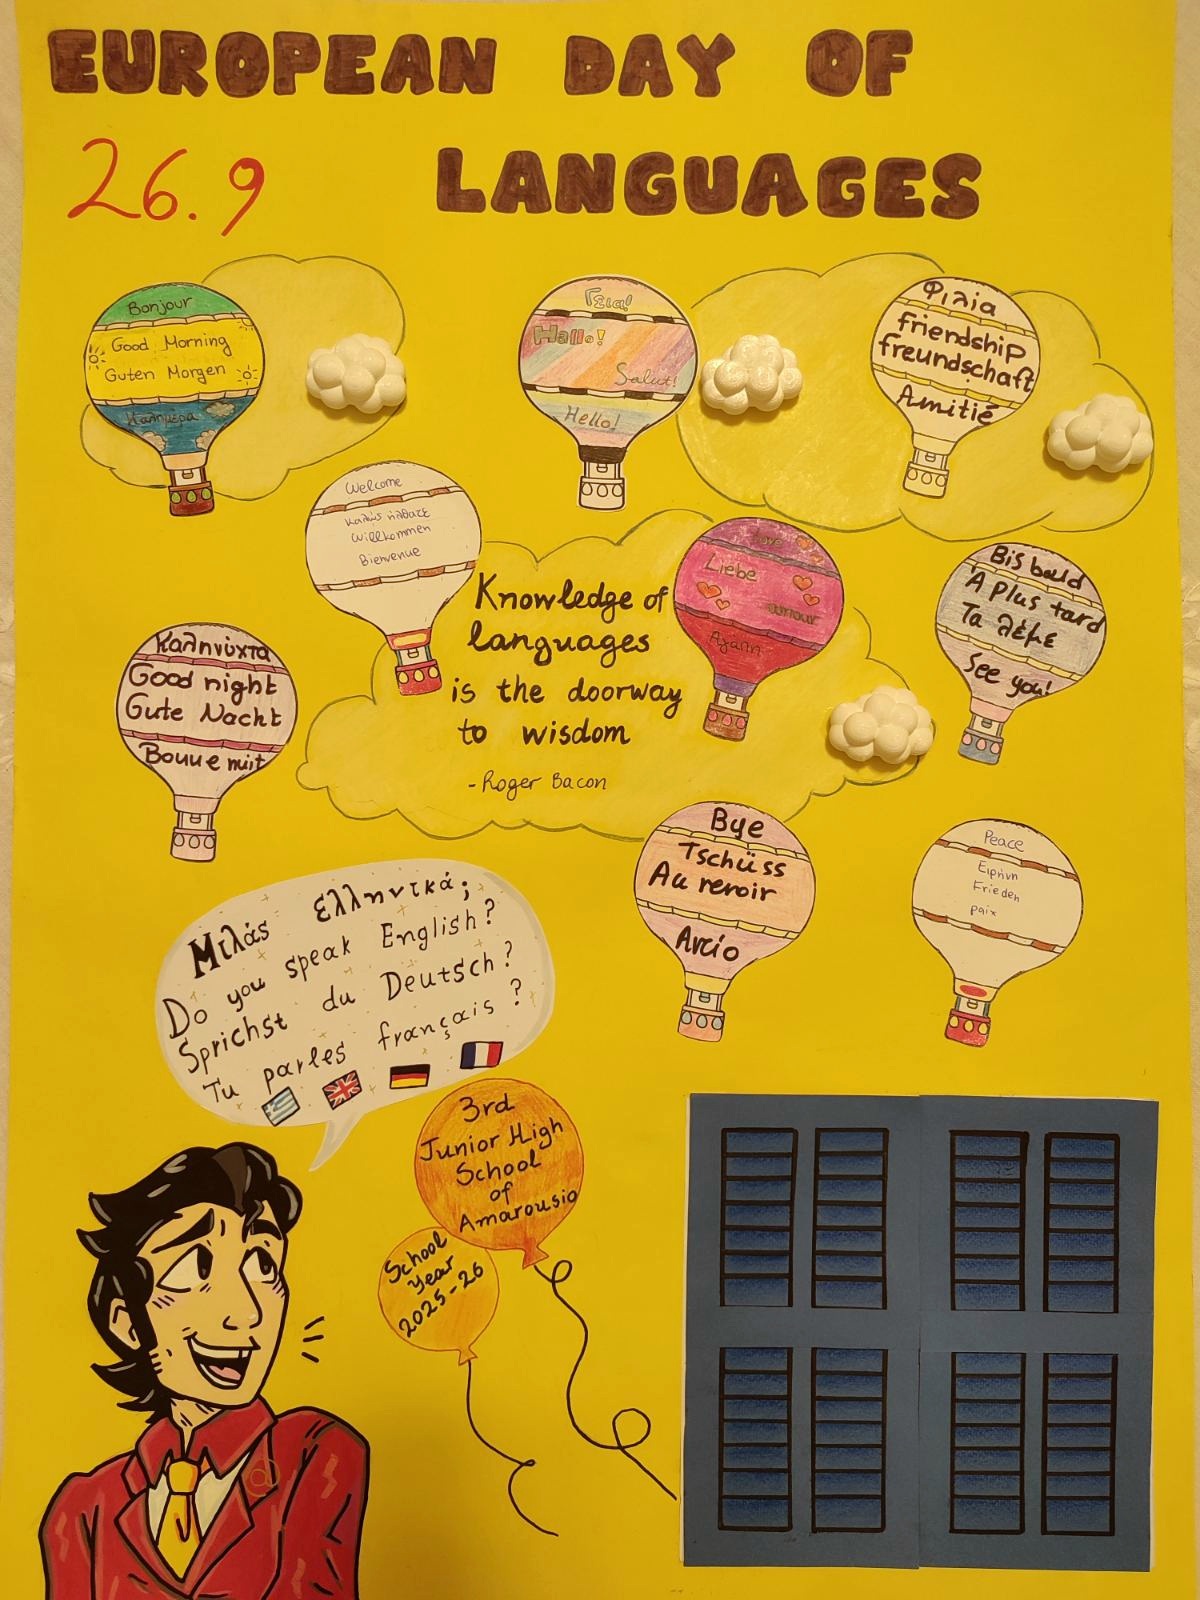 EUROPEAN DAY OF
26.9
LANGUAGES
Bonjour
Good Morning
Guten Morgen
Καλημέρα
Γεια!
Hallo!
Salut!
Hello!
Φιλία
friendship
freundschaft
Amitié
Welcome
Καλώς ήλθατε
Willkommen
Bienvenue
Knowledge of
languages
is the doorway
to wisdom
-Roger Bacon
Love
Liebe
amour
Αγάπη
Bis bald
'A plus tard
Τα λέμε
See you!
Καληνύχτα
Good night
Gute Nacht
Bonne nuit
Bye
Tschüss
Au revoir
Αντίο
Peace
Ειρήνη
Frieden
paix
Μιλάς ελληνικά;
Do you speak English?
Sprichst du Deutsch?
Tu parles français?
3rd
Junior High
School
of
Amarousio
School
year
2025-26